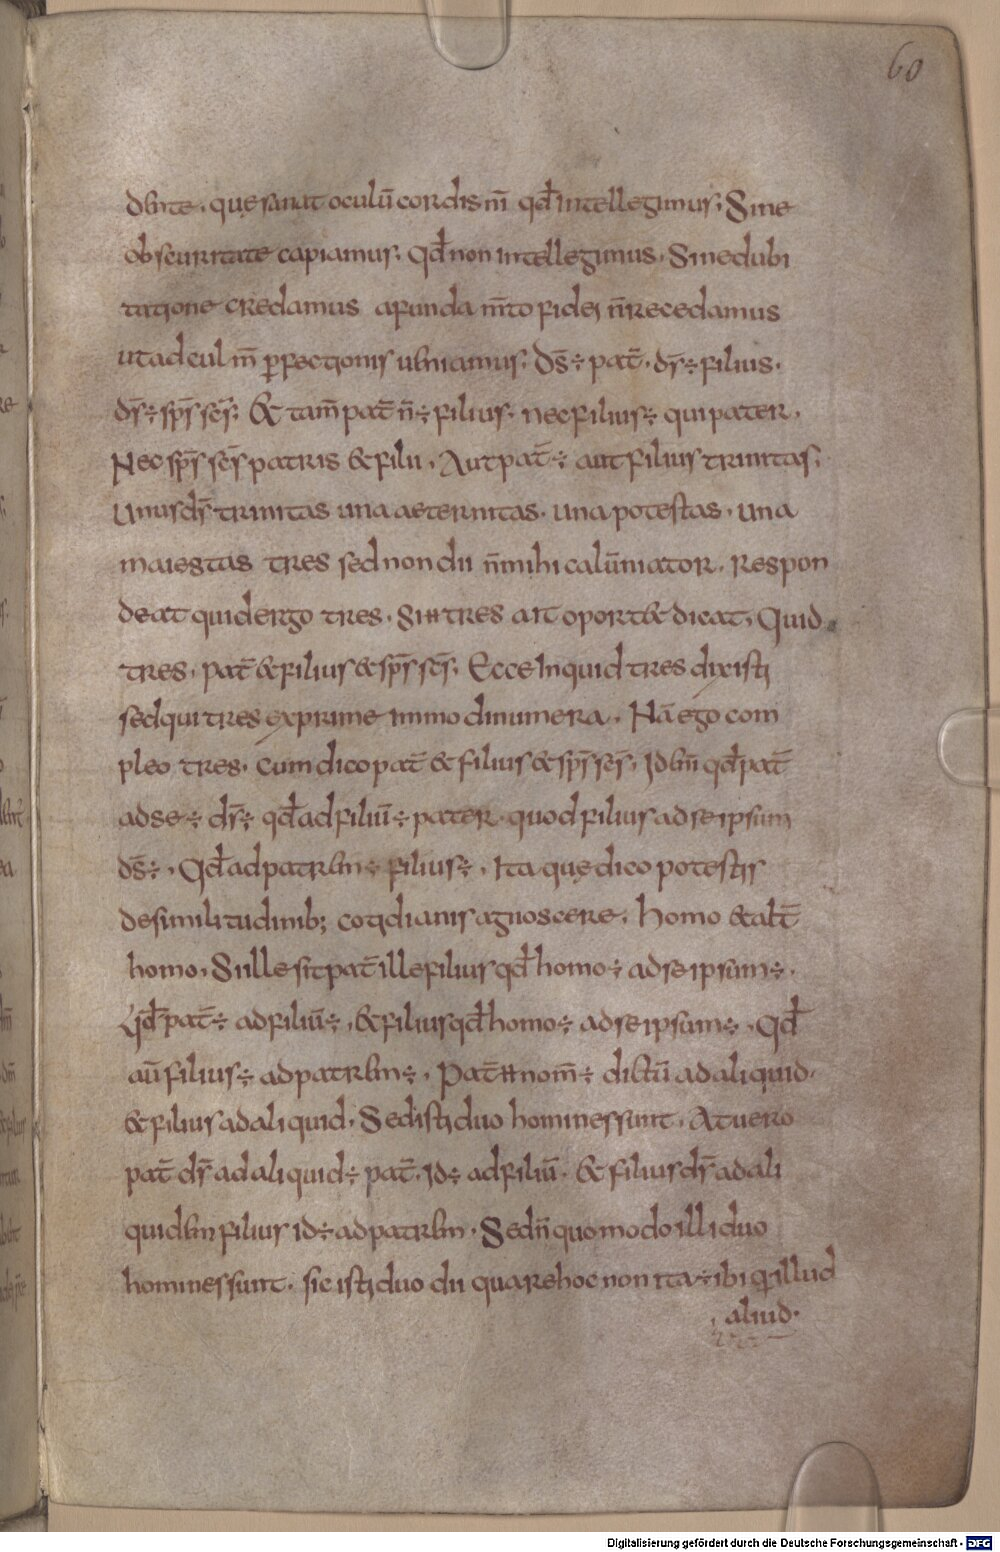 60
dẽnte, quẹ sanat oculū cordis nr̄i qd̄ intellegimus; Sine
obscuritate capiamus. Qd̄ non intellegimus. Sine dubi
tatione credamus a funda m̄to fidei n̄ recedamus
ut ad culm̄ perfectionis ueniamus. Ds̄ ÷ pat̄. ds̄ ÷ filius.
ds̄ ÷ sp̄s sc̄s; & tam̄ pat̄ n̄ ÷ filius. nec filius ÷ qui pater.
Nec sp̄s sc̄s patris & filii. Aut pat̄ ÷ aut filius trinitas;
Unus ds̄ trinitas una aeternitas. una potestas. una
maiestas tres sed non dii n̄ mihi calūniator. Respon
deat quid ergo tres. Si ħ tres ait oport& dicat. Quid
tres. pat̄ & filius & sp̄s sc̄s. Ecce Inquid tres dixisti
sed qui tres exprime immo dinumera. Nā ego com
pleo tres. cum dico pat̄ & filius & sp̄s sc̄s. Id en̄ qd̄ pat̄
ad se ÷ ds̄ ÷ qd̄ ad filiū ÷ pater. quod filius ad se ipsum
ds̄ ÷. Qd̄ ad patrem ÷ filius ÷. Ita quẹ dico potestis
de similitudinib; cotidianis agnoscere. homo & alt̄
homo. Si ille sit pat̄ ille filius qd̄ homo ÷ ad se ipsum ÷.
Qd̄ pat̄ ÷ ad filiū ÷. & filius qd̄ homo ÷ ad se ipsum ÷. Qd̄
aū filius ÷ ad patrem ÷. Pat̄ ħ nom̄ ÷ dictū ad aliquid.
& filius ad aliquid. Sed isti duo homines sunt. At uero
pat̄ ds̄ ad aliquid ÷ pat̄. Id ÷ ad filiū. & filius ds̄ ad ali
quid em̄ filius id ÷ ad patrem. Sed n̄ quomodo illi duo
homines sunt. sic isti duo dii quare hoc non ita ÷ ibi q̄ illud
aliud.
Digitalisierung gefördert durch die Deutsche Forschungsgemeinschaft - DFG